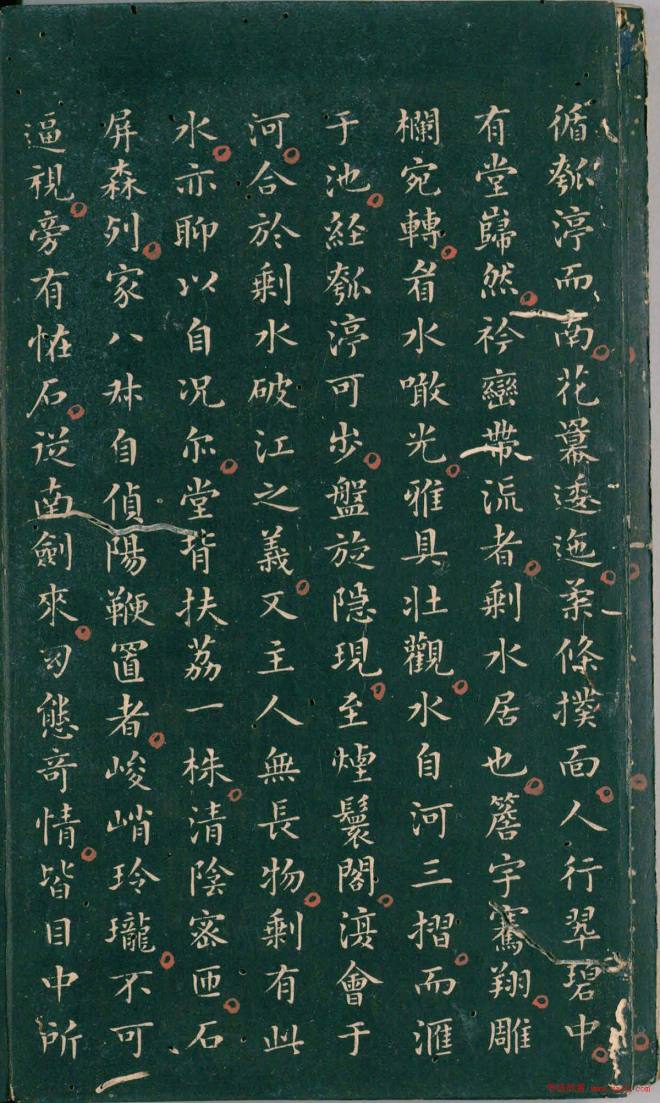 循瓠渟而南花冪逶迤葉條撲面人行翠碧中
有堂巋然衿巒帶流者剩水居也簷宇騫翔雕
欄宛轉看水噉光雅具壯觀水自河三摺而滙
于池経瓠渟可步盤旋隠現至煙鬟閣復會于
河合於剩水破江之義又主人無長物剩有此
水亦聊以自况尔堂背扶荔一株清陰宻匝石
屏森列家八叔自偵陽鞭置者峻峭玲瓏不可
逼視旁有恠石從南劍來幻態奇情皆目中所